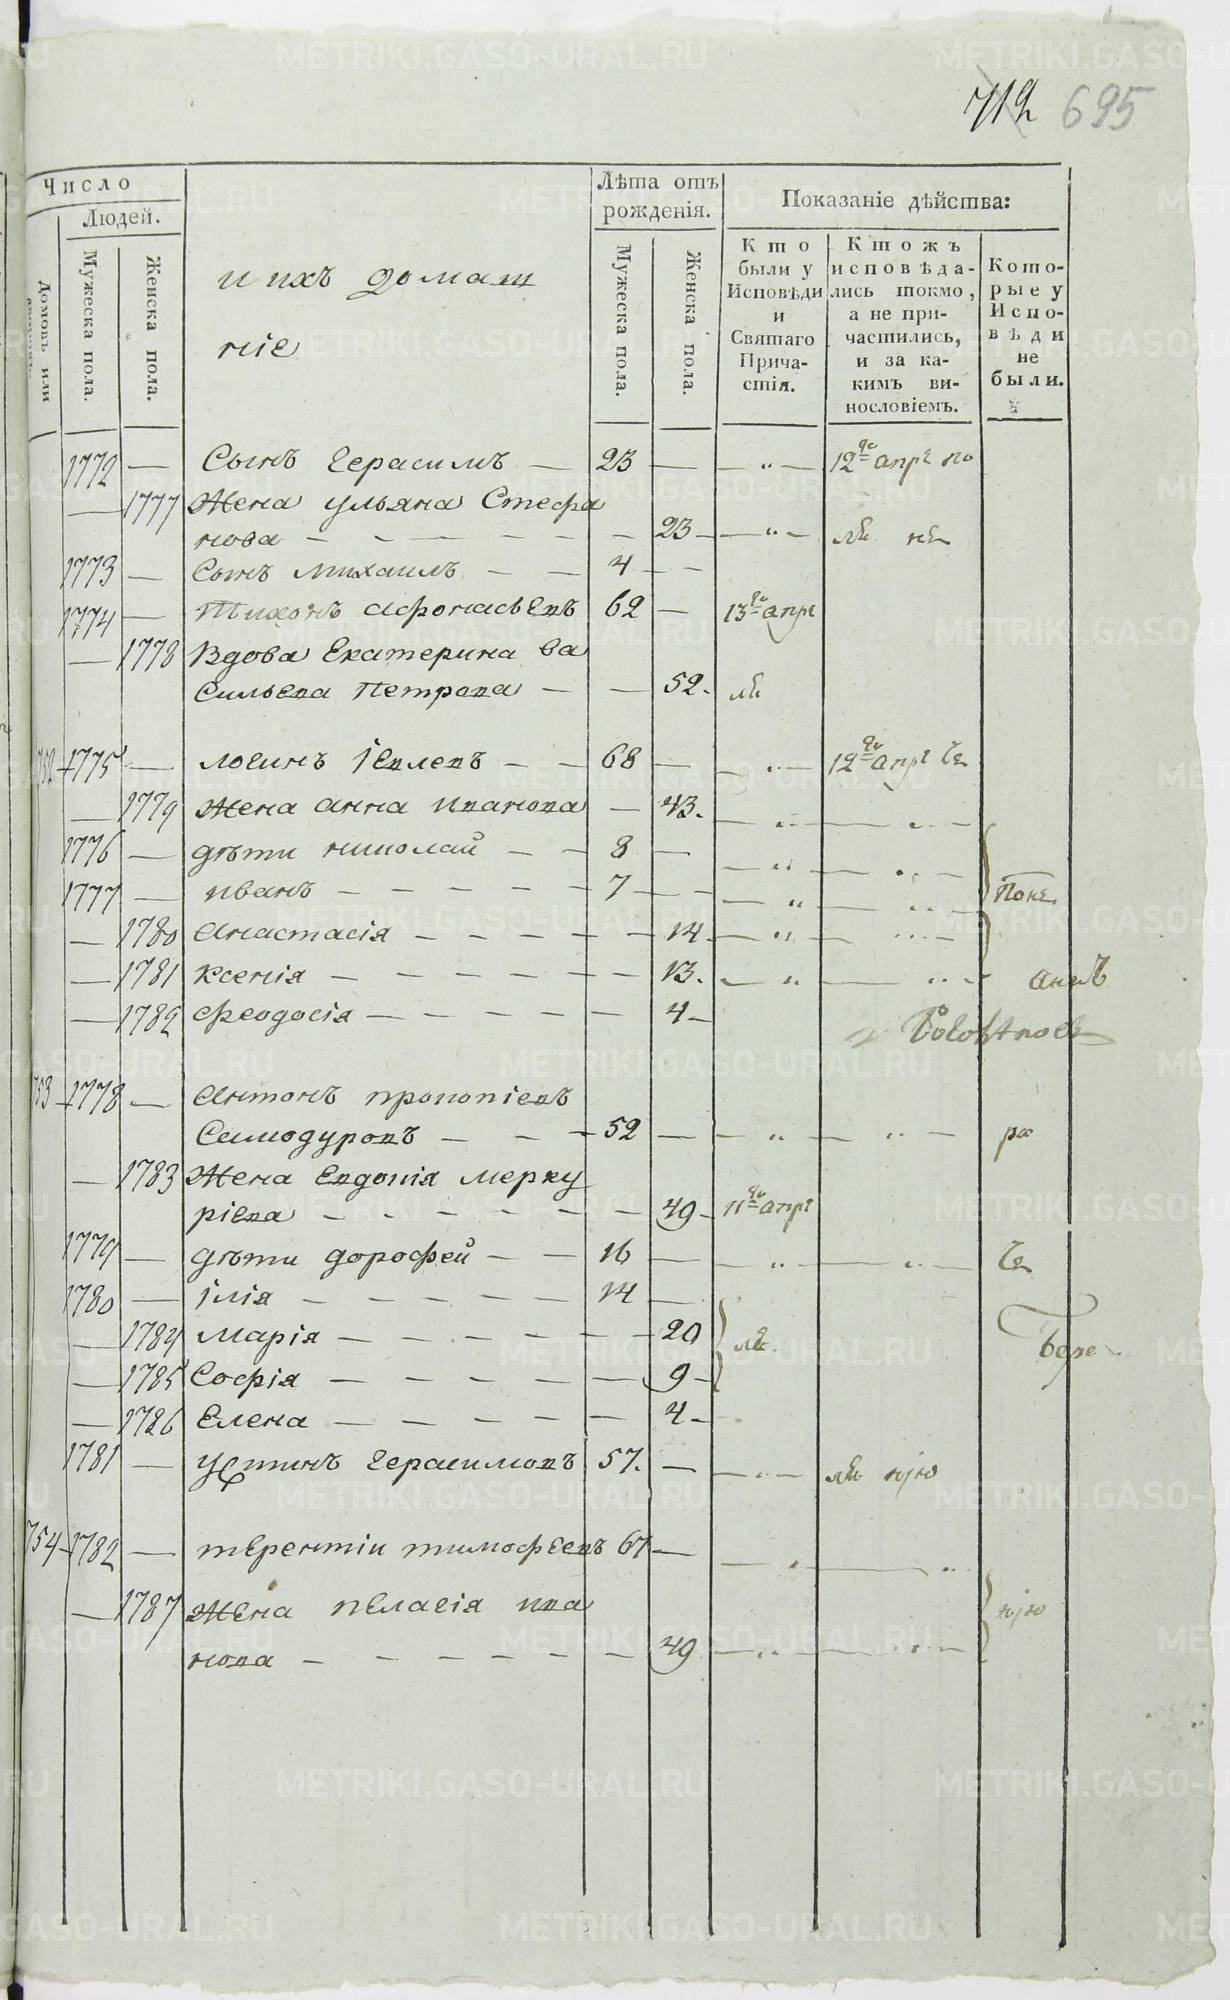 712 695
Число
Людей.
Домовъ или
Мужеска пола.
Женска пола.
и ихъ домаш
ніе
Лѣта отъ
рожденія.
Мужеска пола.
Женска пола.
Показаніе дѣйства:
Кто
были у
Исповѣди
и
Святаго
Прича-
стія.
Ктожъ
исповѣда-
лись токмо,
а не при-
частились,
и за ка-
кимъ ви-
нословіемъ.
Кото-
рые у
Испо-
вѣди
не
были.
1772 — Сынъ Герасимъ — 23 — — „ — 12го апр по
— 1777 Жена Ульяна Стефа
нова — — — — — — 23 — — „ —
1773 — Сынъ Михаилъ — — 4 — —
1774 — Тихонъ Афонасьевъ 62 — 13го апр
— 1778 Вдова Екатерина Ва
сильева Петрова — — 52.
752 1775 — Логинъ Іевлевъ — — 68 — — „ — 12го апр
— 1779 Жена Анна Иванова — 43. — „ — „ —
1776 — дѣти Николай — — 8 — — „ — „ —
1777 — Иванъ — — — — — 7 — — — „ — „ —
— 1780 Анастасія — — — — — 14 — — „ — „ —
— 1781 Ксенія — — — — — — 13. — „ — „ —
— 1782 Феодосія — — — — — 4 —
753 1778 — Антонъ Прокопіевъ
Самодуровъ — — — 52 — — „ — „ —
— 1783 Жена Евдокія Мерку
ріева — — — — — — 49 — 11го апр
1779 — дѣти Дорофей — — 16 — — „ — „ —
1780 — Ілія — — — — — 14 —
— 1784 Марія — — — — — — 20
— 1785 Софія — — — — — — 9 —
— 1786 Елена — — — — — 4 —
1781 — Устинъ Герасимовъ 57. — — „ —
754 1782 — Терентіи Тимофеевъ 67 — — „ — „
— 1787 Жена Пелагія Ива
нова — — — — — — 49 — „ — „ —
METRIKI.GASO-URAL.RU